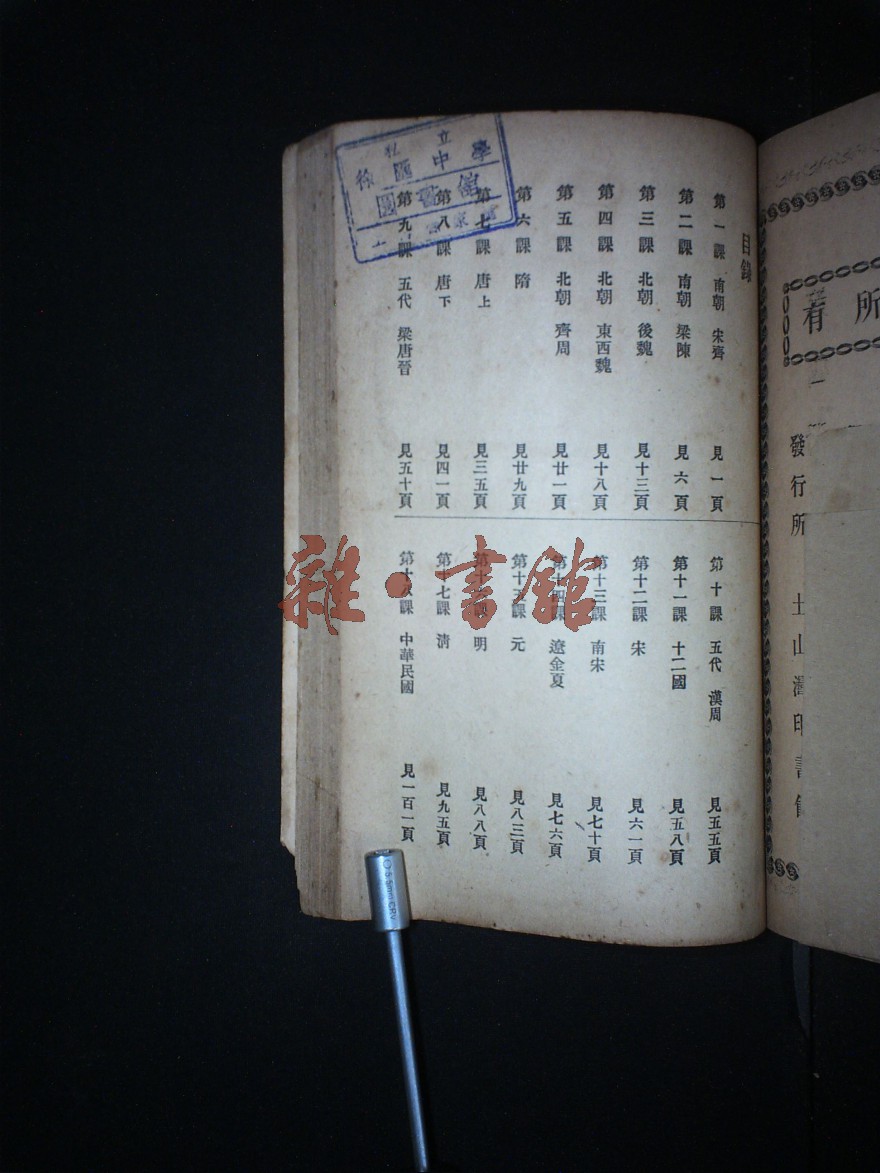 目錄
第一課 南朝 宋齊 見一頁
第二課 南朝 梁陳 見六頁
第三課 北朝 後魏 見十三頁
第四課 北朝 東西魏 見十八頁
第五課 北朝 齊周 見廿一頁
第六課 隋 見廿九頁
第七課 唐上 見三五頁
第八課 唐下 見四一頁
第九課 五代 梁唐晉 見五十頁
第十課 五代 漢周 見五五頁
第十一課 十二國 見五八頁
第十二課 宋 見六一頁
第十三課 南宋 見七十頁
第十四課 遼金夏 見七六頁
第十五課 元 見八三頁
第十六課 明 見八八頁
第十七課 淸 見九五頁
第十八課 中華民國 見一百一頁
私立
徐匯中學
圖書館
所有
發行所 土山灣印書館
雜·書館
5.5mm CRV